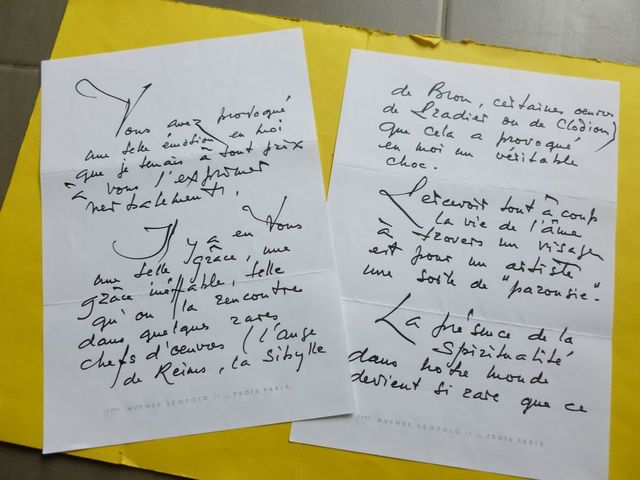 Vous avez provoqué
une telle émotion en moi
que je tenais à tout prix
à vous l'exprimer
verbalement.
Il y a en Vous
une telle grâce, une
grâce ineffable, telle
qu'on la rencontre
dans quelques rares
chefs d'oeuvres (l'Ange
de Reims, la Sibylle
11BIS AVENUE LEOPOLD II - 75016 PARIS
de Brou, certaines oeuvres
de Pradier ou de Clodion)
que cela a provoqué
en moi un véritable
choc.
Percevoir tout à coup
la vie de l'âme
à travers un visage
est pour un artiste
une sorte de "parousie".
La présence de la
Spiritualité
dans notre monde
devient si rare que ce
11BIS AVENUE LEOPOLD II - 75016 PARIS